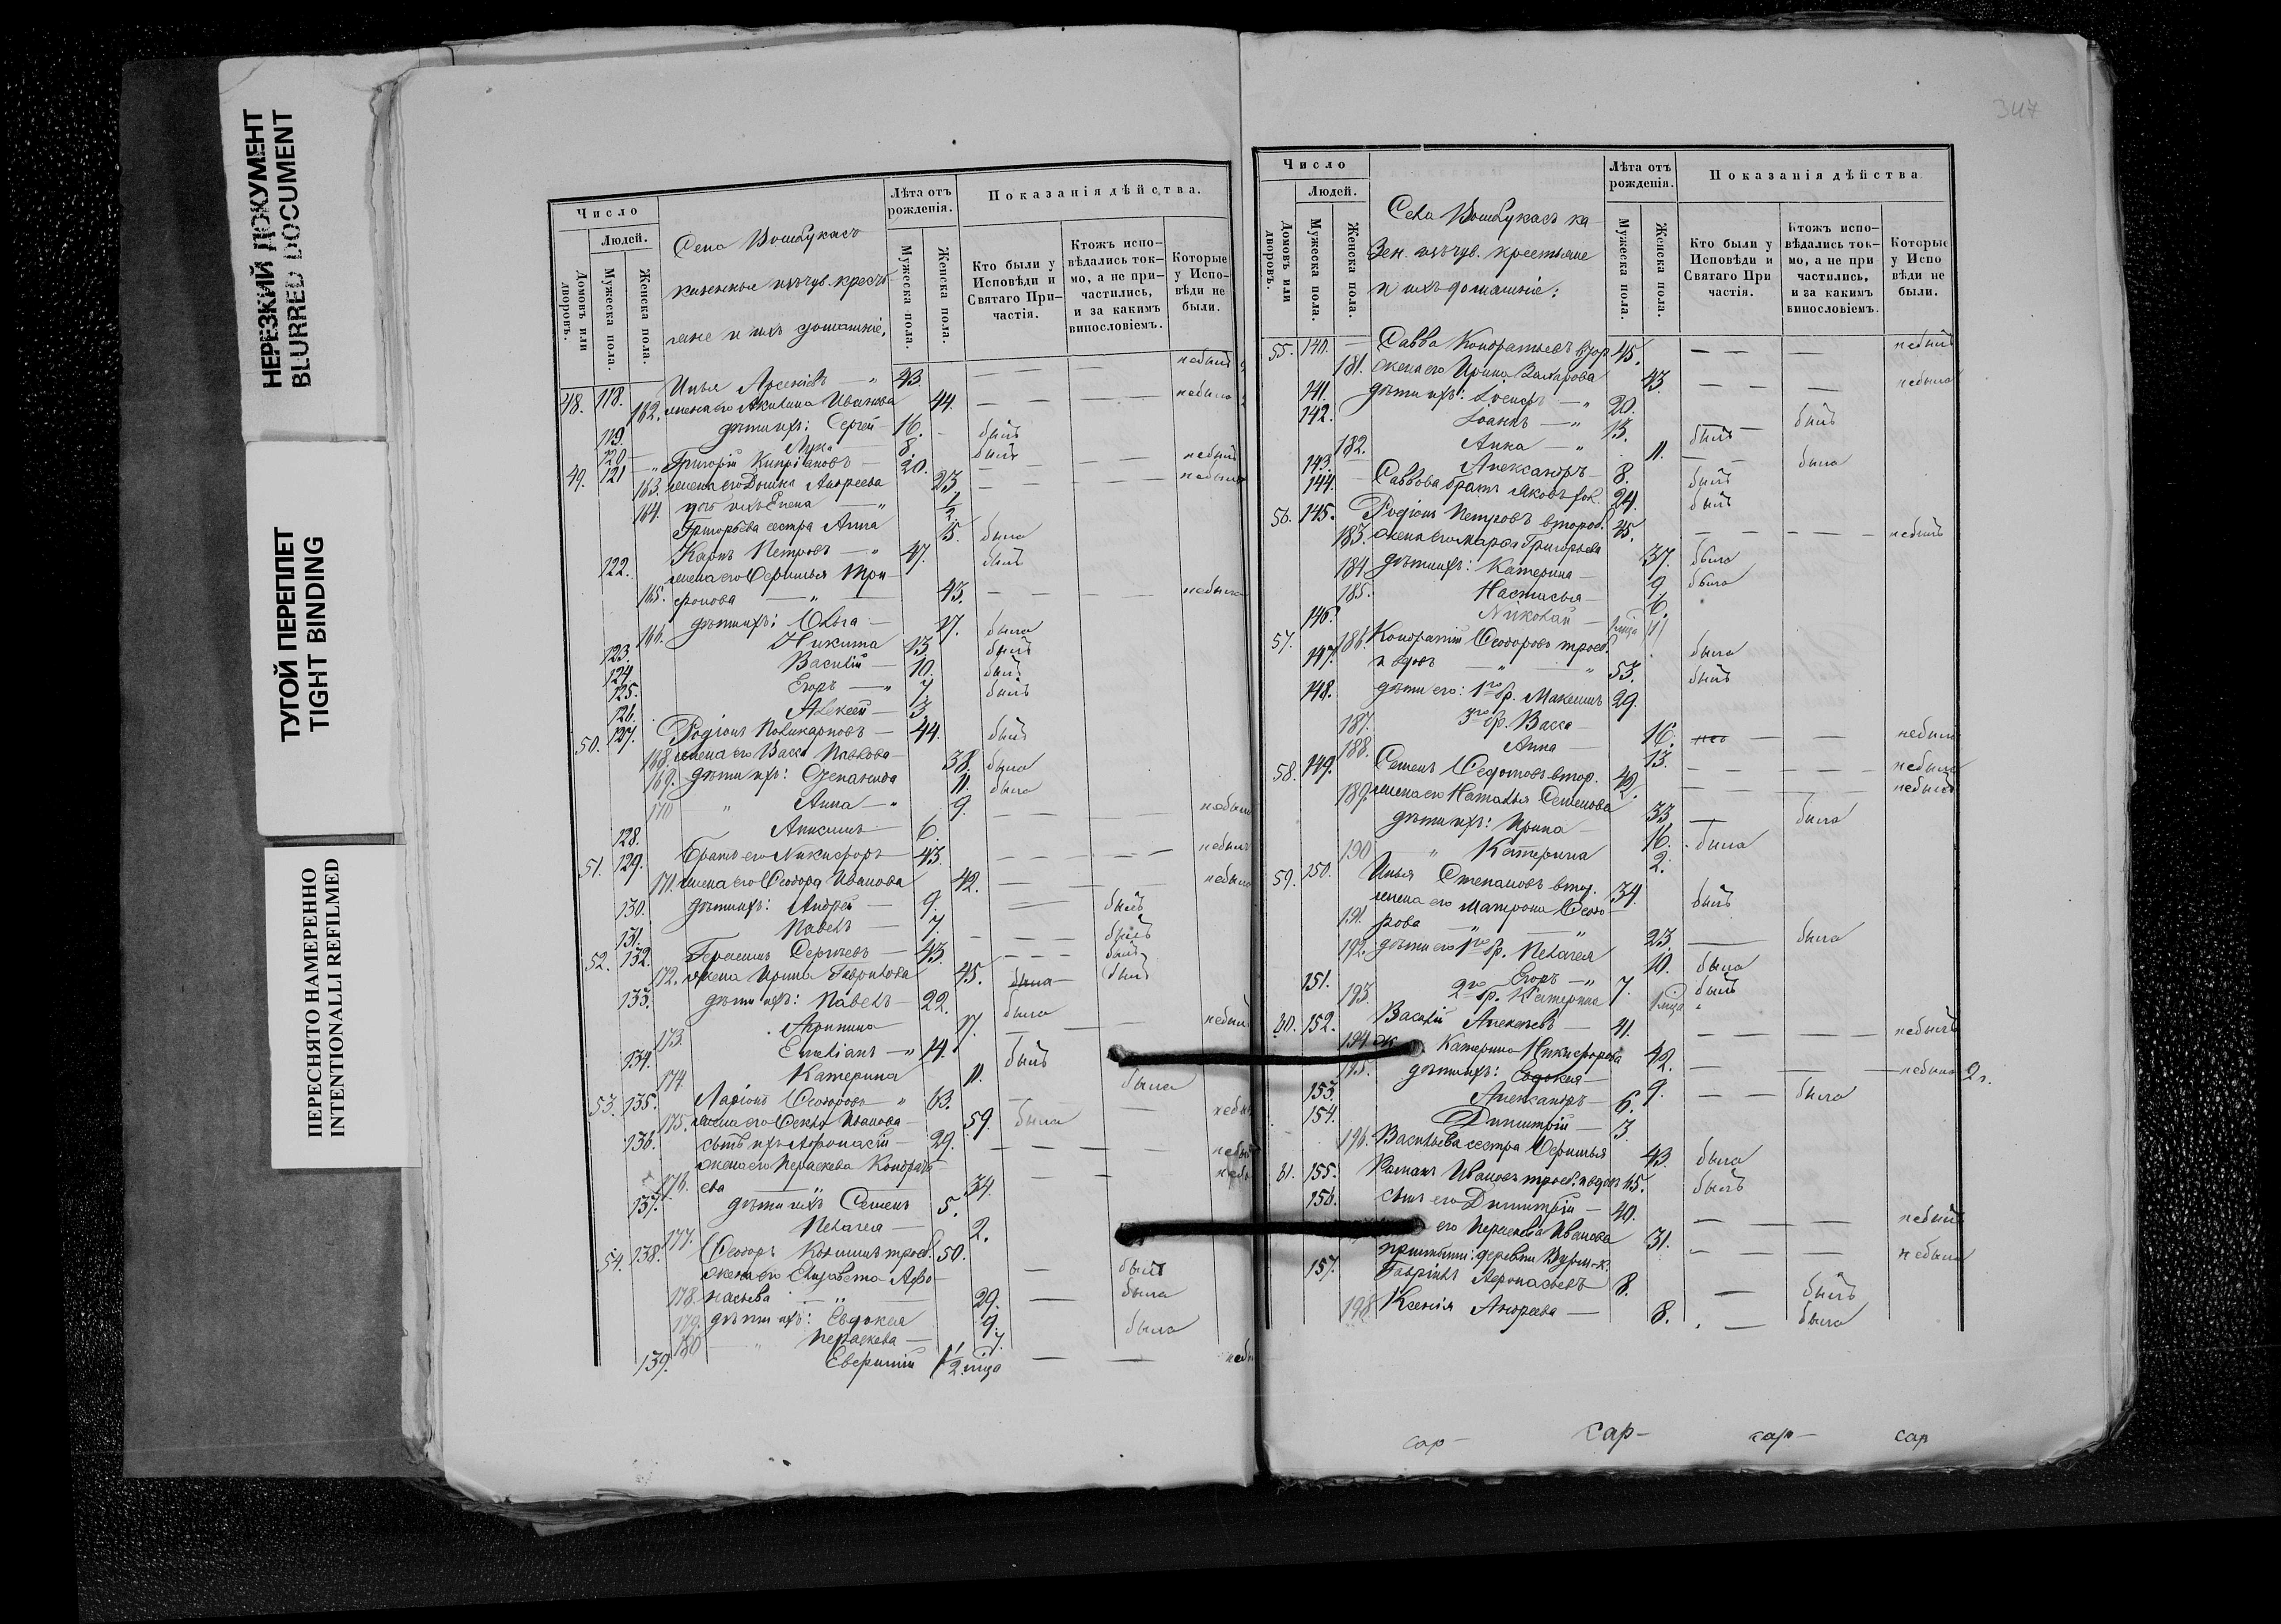 НЕРЕЗКИЙ ДОКУМЕНТ
BLURRED DOCUMENT
ТУГОЙ ПЕРЕПЛЕТ
TIGHT BINDING
ПЕРЕСНЯТО НАМЕРЕННО
INTENTIONALLI REFILMED
Число
Людей.
Домовъ или дворовъ.
Мужеска пола.
Женска пола.
Села
казенные изъ чув. кресть-
яне и ихъ домашніе,
Лѣта отъ рожденія.
Мужеска пола.
Женска пола.
Показанія дѣйства.
Кто были у Исповѣди и Святаго При-частія.
Ктожъ испо-вѣдались ток-мо, а не при-частились, и за какимъ винословіемъ.
Которые у Испо-вѣди не были.
48. 118. Илья Арсеніевъ — 43. — — — небылъ
162. жена его Акилина Иванова 44. — — — небыла
119. дѣти ихъ: Сергей — 16. былъ
120 — Лука — 8. былъ
49. 121 — Григорій Кипріановъ — 20. — — — небылъ
163. жена его Андреева 23 — — — небыла
164. дочь ихъ Елена — 1/2
Григорьева сестра Анна 15. была
122. Карпъ Петровъ — 47. былъ
жена его Ѳефимья Три-
165. фонова — 43. — — — небыла
166. дѣти ихъ: Ольга — 17. была
123. Никита 13. былъ
124. Василій — 10. былъ
125. Егоръ — 7. былъ
126. Алексей — 3
50. 127. Родіонъ Поликарповъ — 44. былъ
168. жена его Васса Павлова — 38. была
169. дѣти ихъ: Степанида 11. была
170 " Анна — 9. — — — небыла
128. Анисимъ — 6.
51. 129. Братъ его Никифоръ — 43. — — — небылъ
171. жена его Ѳеодора Иванова 42. — — небыла
130. дѣти ихъ: Андрей — 9. — былъ
131. Павелъ — 7. — былъ
52. 132. Герасимъ Сергѣевъ — 43. — — — былъ
172. жена Ирина Гаврилова 45. была былъ
133. дѣти ихъ: Павелъ — 22. была
173. Агрипина 17. — — небыла
134. Емеліанъ — 14. былъ
174 Катерина 11. была
53. 135. Ларіонъ Ѳеодоровъ " 63. — —
175. жена его Ѳекла Иванова — 59. была
136. сынъ ихъ Афонасій — 29. — — —
жена его Параскева Кондрать-
176. ева — 34. — —
137. дѣти ихъ Семенъ 5.
177. Пелагея — 2.
54. 138. Ѳеодоръ троеб. 50. — былъ
жена его Елизавета Афо-
178. насьева — 29. — была
179. дѣти ихъ: Евдокея 9. была
180 — " Параскева — 7.
139. 1/2 мца — —
347
Число
Людей.
Домовъ или дворовъ.
Мужеска пола.
Женска пола.
Села ка-
зен. изъ чув. крестьяне
и ихъ домашніе:
Лѣта отъ рожденія.
Мужеска пола.
Женска пола.
Показанія дѣйства
Кто были у Исповѣди и Святаго При частія.
Ктожъ испо-вѣдались ток-мо, а не при частились, и за какимъ винословіемъ.
Которые у Испо вѣди не были.
55. 140. — Савва Кондратьевъ втор 45. — — — небылъ
181. жена его Ирина Захарова 43. — — — небыла
141. дѣти ихъ: Іосифъ — 20. — былъ
142. Іоаннъ — 13. былъ
182. Анна — 11. — была
143. Александръ — 8. былъ
144. — Саввова братъ Яковъ 24. былъ
56. 145. Родіонъ Петровъ второб. 45. — — — небылъ
183. жена его Марфа Григорьева 37. была
184 дѣти ихъ: Катерина — 9 была
185. Настасья — 6.
146. Николай —
57. 147. 186. Кондратій Ѳеодоровъ троеб. была
и вдовъ — 53. былъ
148. дѣти его: 1го бр. Максимъ 29.
187. 3го бр. Васса — 16. — — небыла
188. Анна — 13. — — — небыла
58. 149. Семенъ Ѳедотовъ втор. 42. — — — небылъ
189. жена его Наталья Семенова 33 — была
дѣти ихъ: Ирина — 16. была
190 " Катерина 2.
59. 150. Илья Степановъ втор. 34. былъ
жена его Матрона Ѳеодо-
191. рова — 23. — была
192. дѣти его 1го бр. Пелагея 10. была
151. Егоръ — 7. былъ
193. 2го бр. Катерина
60. 152. Василій Алексѣевъ — 41. — — — небылъ
194 ж Катерина Никифорова 42. — — небыла 2 г.
195. дѣти ихъ: Евдокея — 9. — была
153. Александръ — 6.
154. Димитрій — 3.
196. Васильева сестра Ѳефимья 43. была
61. 155. Романъ Ивановъ троеб. и вдов 65. былъ
156. сынъ его Димитрій — 40. — — небылъ
его Параскева Иванова 31. — — небыла
деревни
157. Гаврилъ Афонасьевъ 8. — былъ
198. Ксенія Андреева — 8. — была
сар- сар- сар- сар